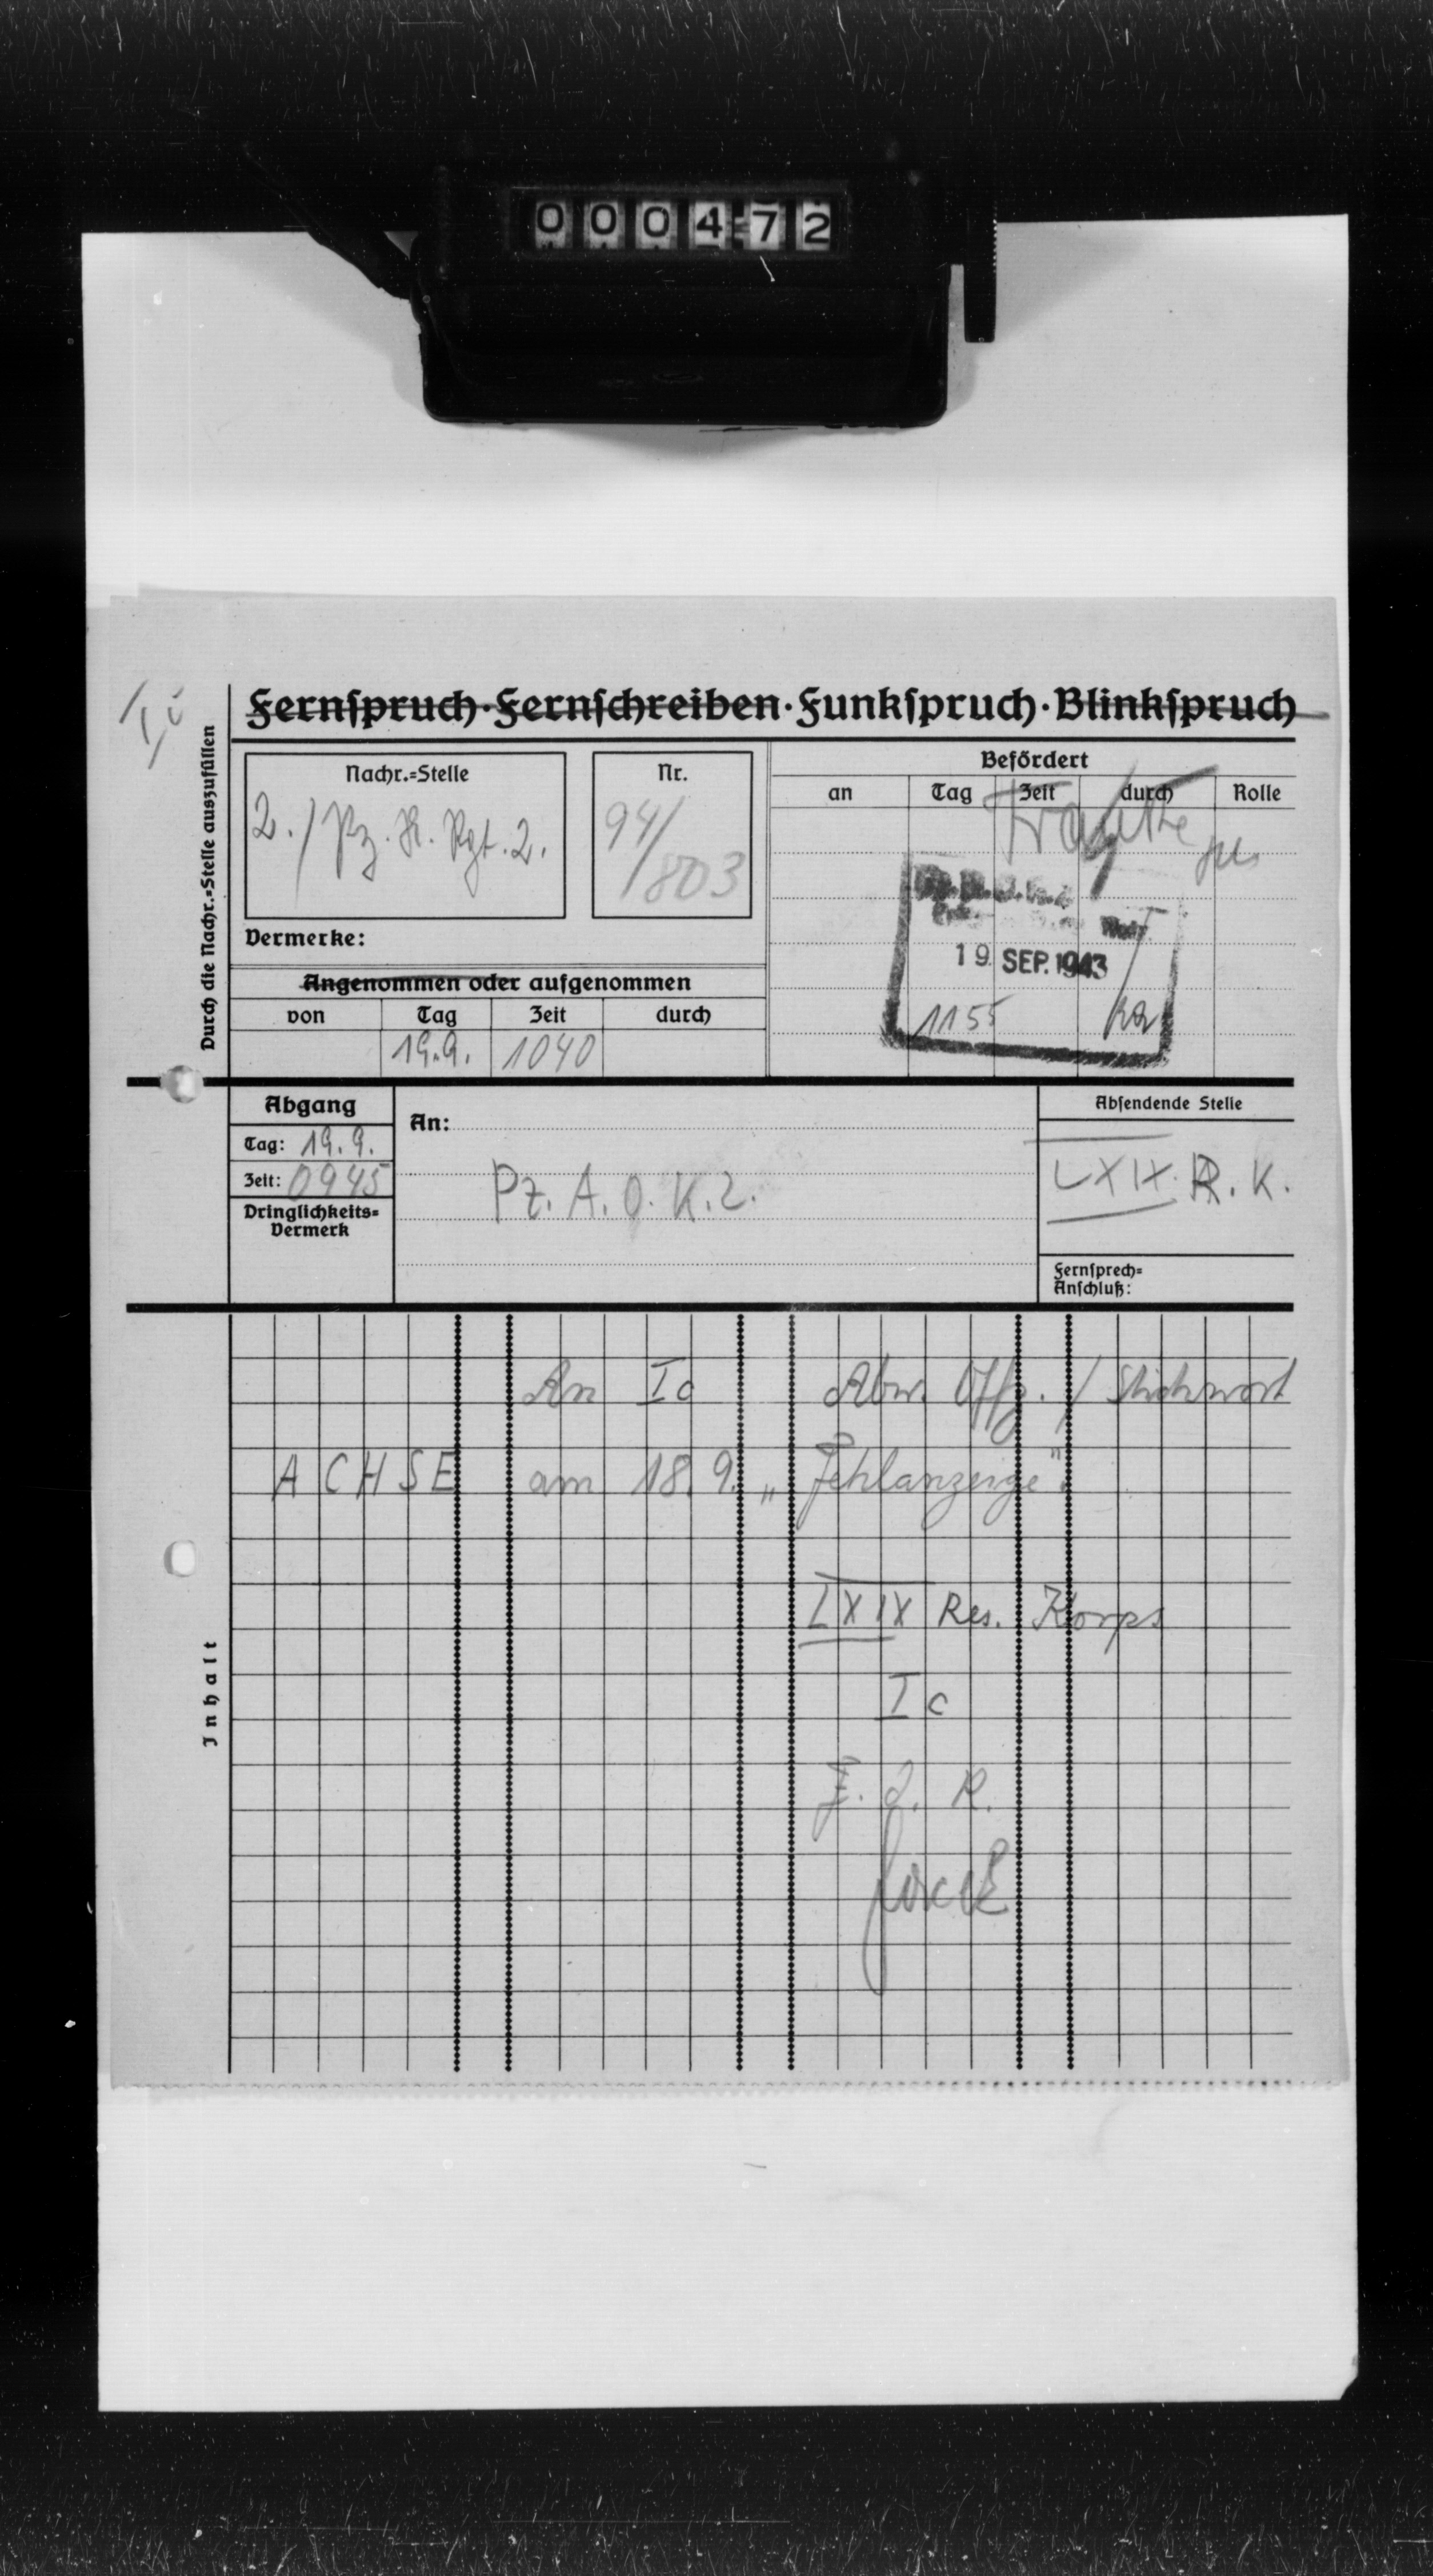 000472
Fernspruch·Fernschreiben·Funkspruch·Blinkspruch
Durch die Nachr.=Stelle auszufüllen
Nachr.=Stelle
2./Pz. N. Rgt. 2.
Nr.
94/
803
Befördert
an Tag Zeit durch Rolle
Vermerke:
19. SEP. 1943
1155
Angenommen oder aufgenommen
von Tag Zeit durch
19.9. 1040
Abgang
Tag: 19.9.
Zeit: 0945
Dringlichkeits=
Vermerk
An:
Pz. A. O. K. 2.
Absendende Stelle
LXIX. R. K.
Fernsprech=
Anschluß:
Inhalt
An Ic Abw. Offz. / Stichwort
ACHSE am 18.9. „Fehlanzeige".
LXIX Res. Korps
Ic
F. d. R.